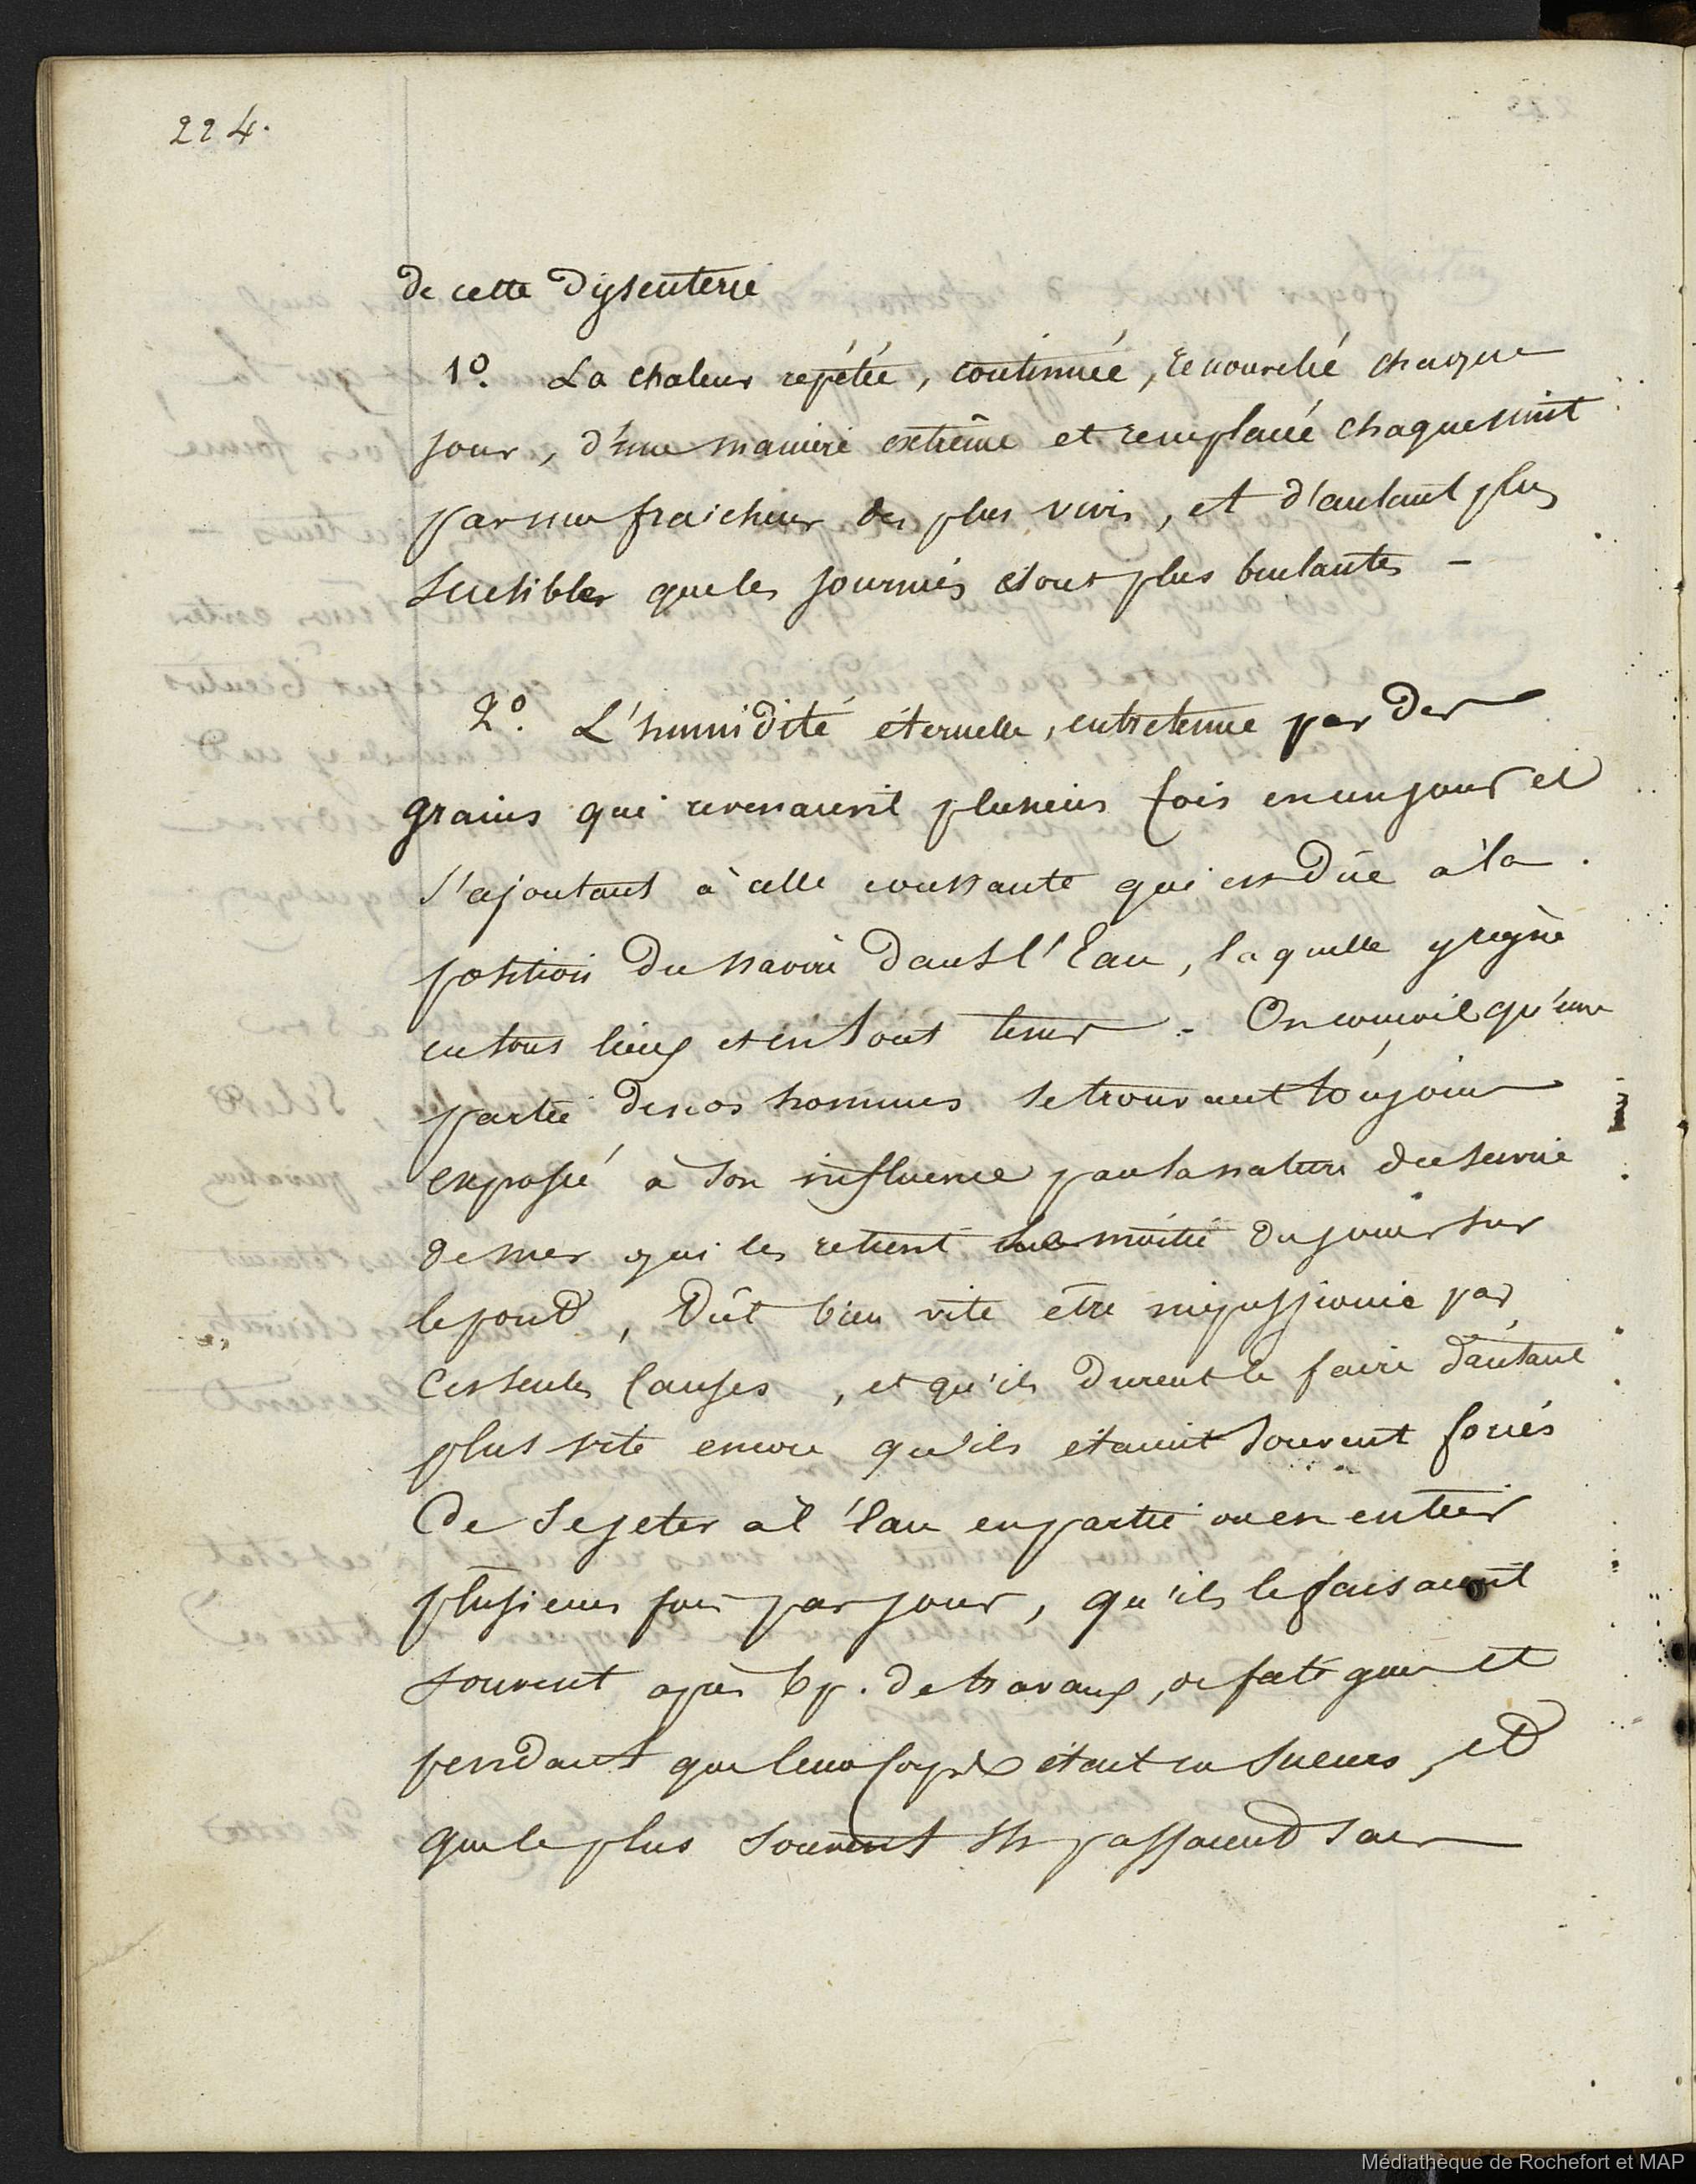 224.
de cette Dysenterie
1º. La chaleur repétée, continuée, renouvelée chaque
jour, d'une manière extrême et remplacée chaque nuit
par une fraicheur des plus vives, et d'autant plus
sensibles que les journées étaient plus brulantes –
2º. L'humidité éternelle, entretenue par des
grains qui revenaient plusieurs fois en un jour et
s'ajoutant à celle constante qui est Dûe à la
position du navire dans l'Eau, laquelle y règne
en tous lieux et en tout tems – On conçoit qu'une
partie de nos hommes se trouvant toujours
exposée à son influence par la nature du service
de mer qui les retient la moitié du jour sur
le pont, Dût bien vite être impressionnée par
ces seules Causes, et qu'ils durent le faire d'autant
plus vite encore qu'ils étaient souvent forcés
de se jeter à l'Eau en partie ou en entier
plusieurs fois par jour, qu'ils le faisaient
souvent après bp. de travaux, de fatigues et
pendant que leur Corps était en sueurs, et
que le plus souvent ils passaient sans
Médiathèque de Rochefort et MAP